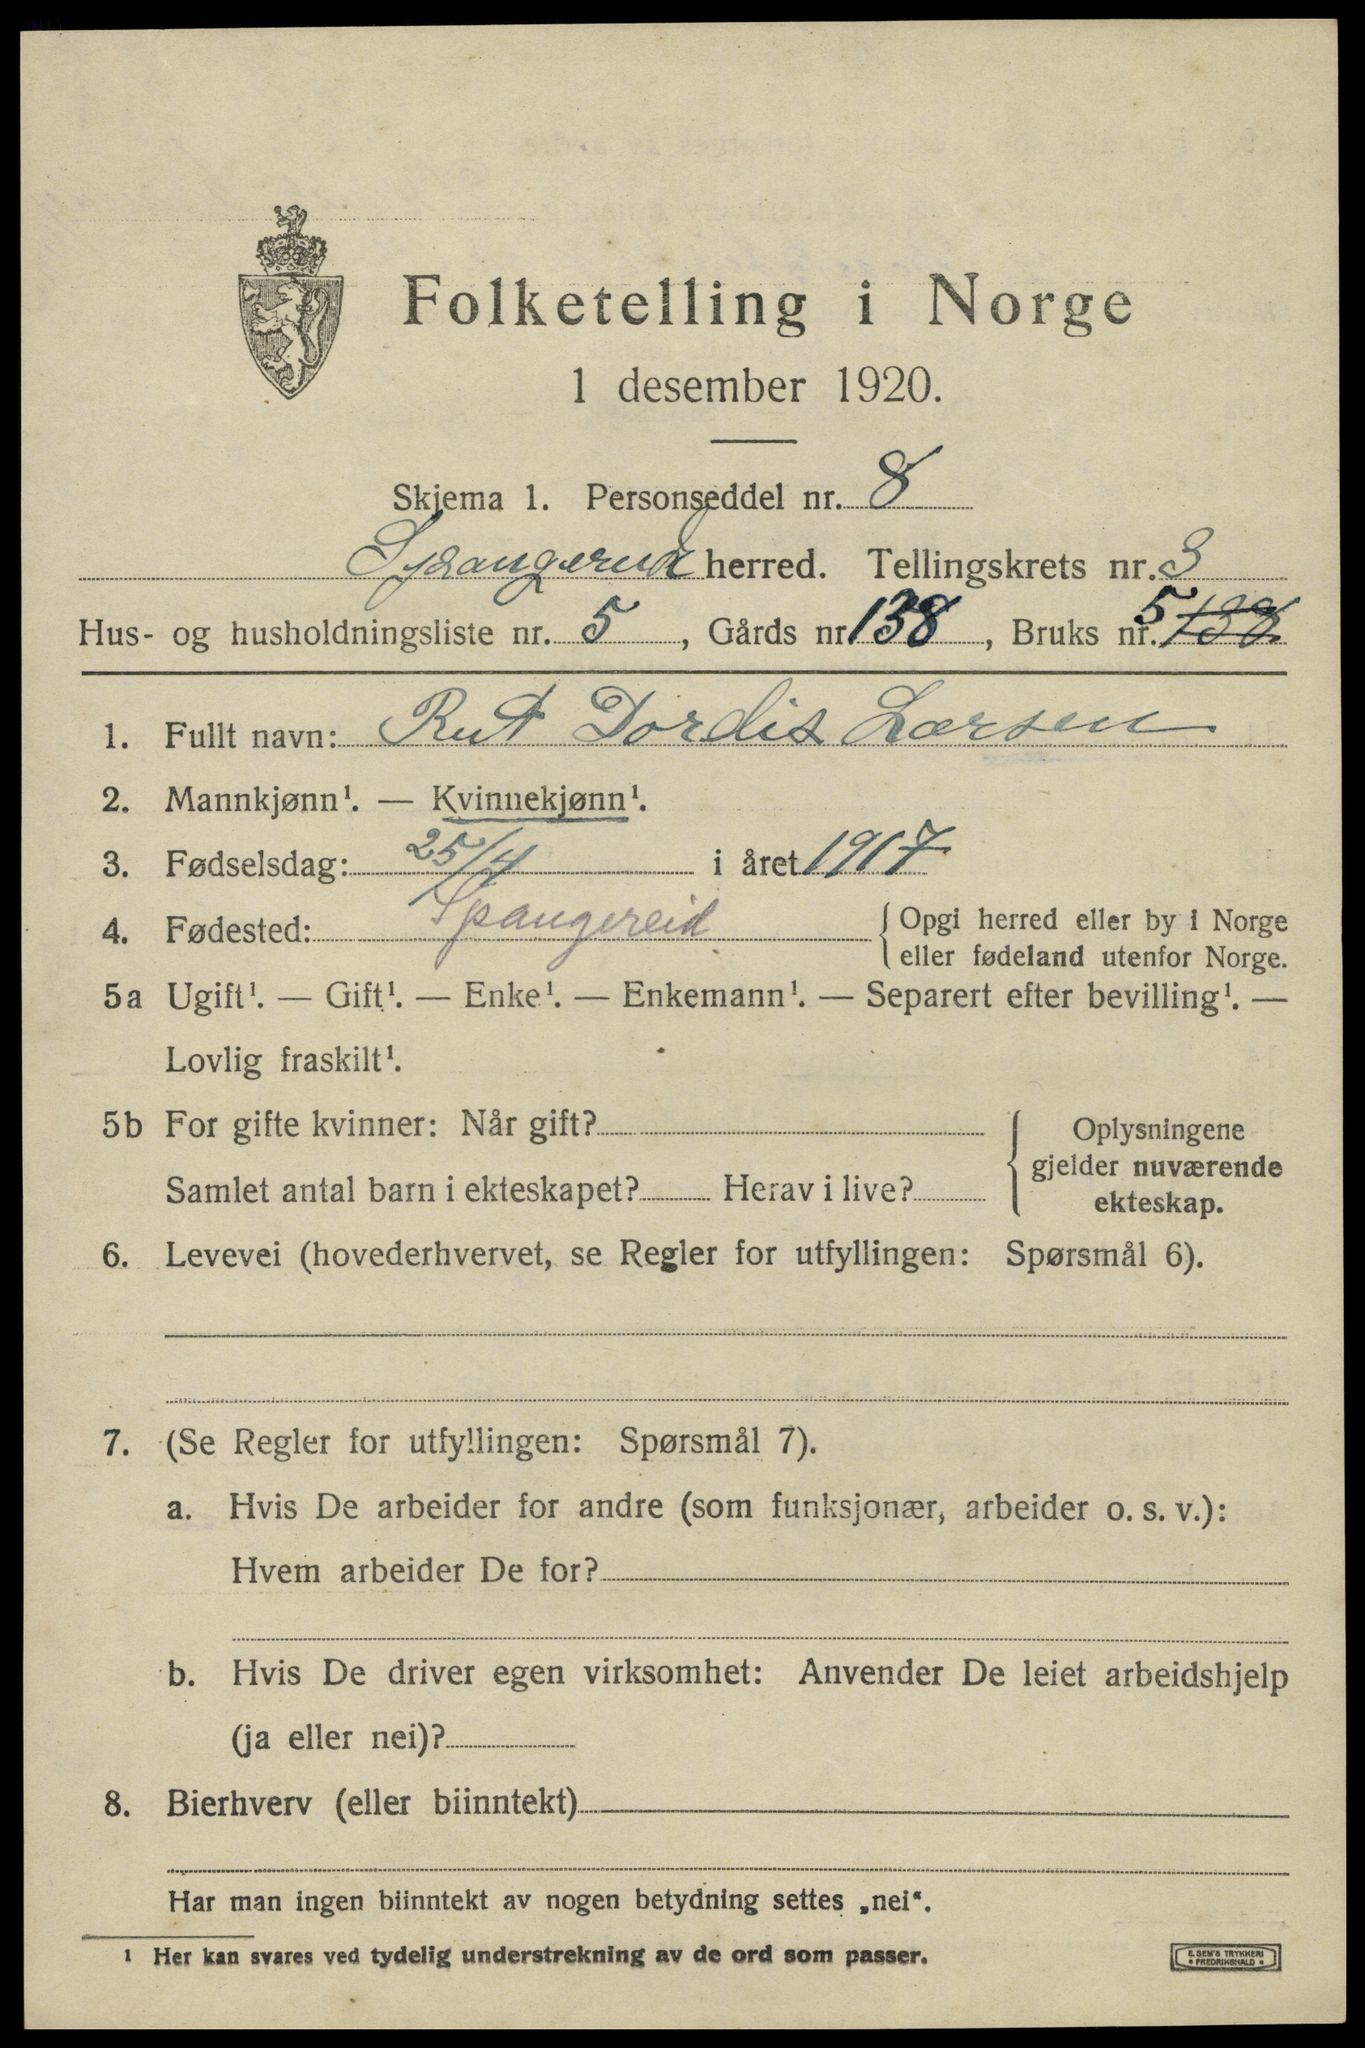 Folketelling i Norge
1 desember 1920.
Skjema 1. Personseddel nr. 8
Spangereid herred. Tellingskrets nr. 3
Hus- og husholdningsliste nr. 5, Gårds nr. 138, Bruks nr. 5 138
1. Fullt navn: Rut Dordis Larsen
2. Mannkjønn¹. — Kvinnekjønn¹.
3. Fødselsdag: 25/4 i året 1917
4. Fødested: Spangereid { Opgi herred eller by i Norge
eller fødeland utenfor Norge.
5a Ugift¹. — Gift¹. — Enke¹. — Enkemann¹. — Separert efter bevilling¹. —
Lovlig fraskilt¹.
5b For gifte kvinner: Når gift?
Samlet antal barn i ekteskapet? Herav i live?
Oplysningene
gjelder nuværende
ekteskap.
6. Levevei (hovederhvervet, se Regler for utfyllingen: Spørsmål 6).
7. (Se Regler for utfyllingen: Spørsmål 7).
a. Hvis De arbeider for andre (som funksjonær, arbeider o. s. v.):
Hvem arbeider De for?
b. Hvis De driver egen virksomhet: Anvender De leiet arbeidshjelp
(ja eller nei)?
8. Bierhverv (eller biinntekt)
Har man ingen biinntekt av nogen betydning settes „nei“.
¹ Her kan svares ved tydelig understrekning av de ord som passer.
E. SEM'S TRYKKERI
• FREDRIKSHALD •